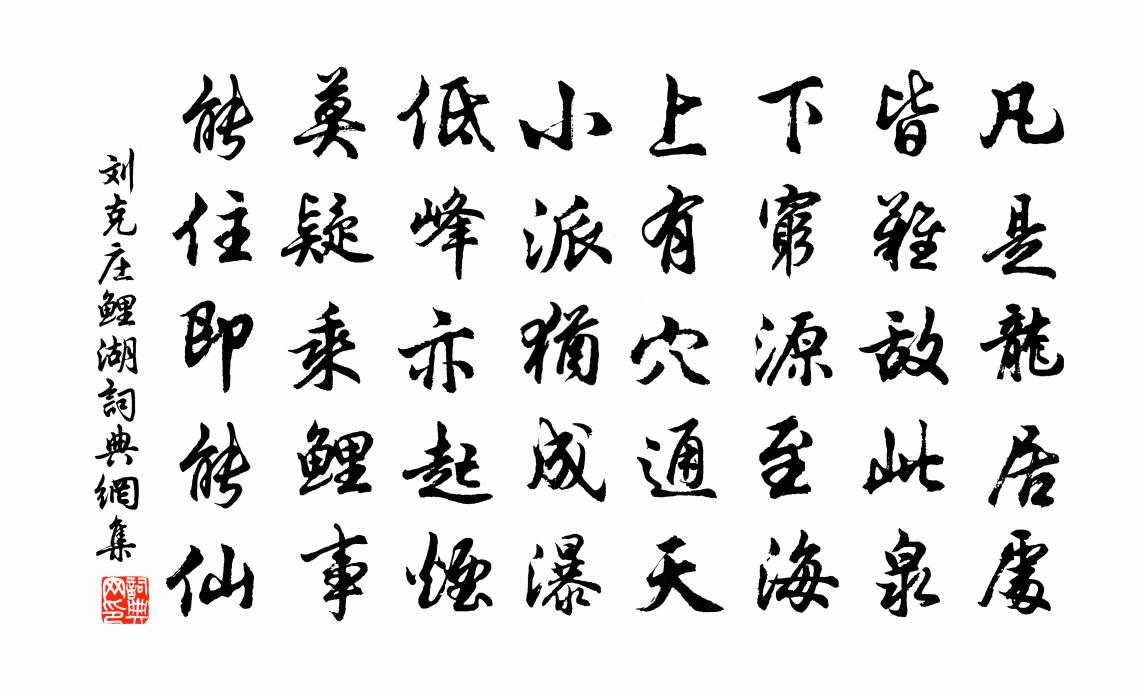 凡是龍居處
皆難敌此泉
下窮源至海
上有穴通天
小派猶成瀑
低峰亦起煙
莫疑乘鯉事
能住即能仙
刘克庄鯉湖詞典網集